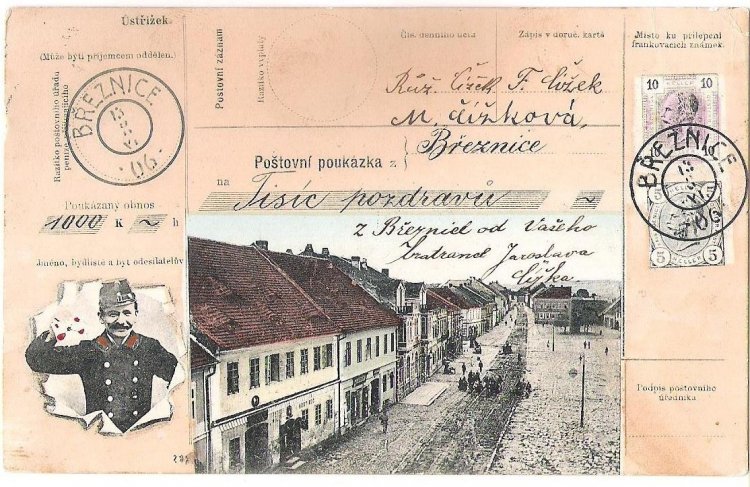 Ústřižek.
(Může býti příjemcem oddělen.)
Razítko poštovního úřadu
BŘEZNICE
06
Poukázaný obnos
1000 K ~ h
Jméno, bydliště a byt odesílatelův
Poštovní záznam
Razítko výplaty
Čís. denního účtu
Zápis v doruč. kartě
Růž. Čížek F. Čížek
M. Čížková,
Březnice
Poštovní poukázka z
na Tisíc pozdravů
z Březnice od Vašeho
bratrance Jaroslava
Čížka
Místo ku přilepení
frankovacích známek.
10 10
HELLER
BŘEZNICE
06
5 5
HELLER
Podpis poštovního
úředníka